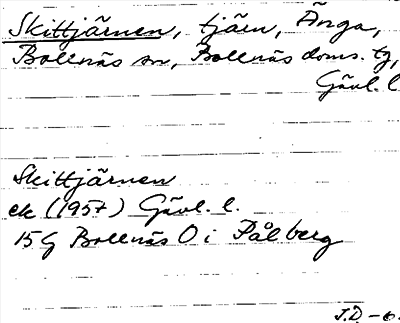 Skittjärnen, tjärn, Änga,
Bollnäs sn, Bollnäs doms. tg,
Gävl. l
Skittjärnen
ek (1957) Gävl. l.
15G Bollnäs O i Pålberg
J.D. -6